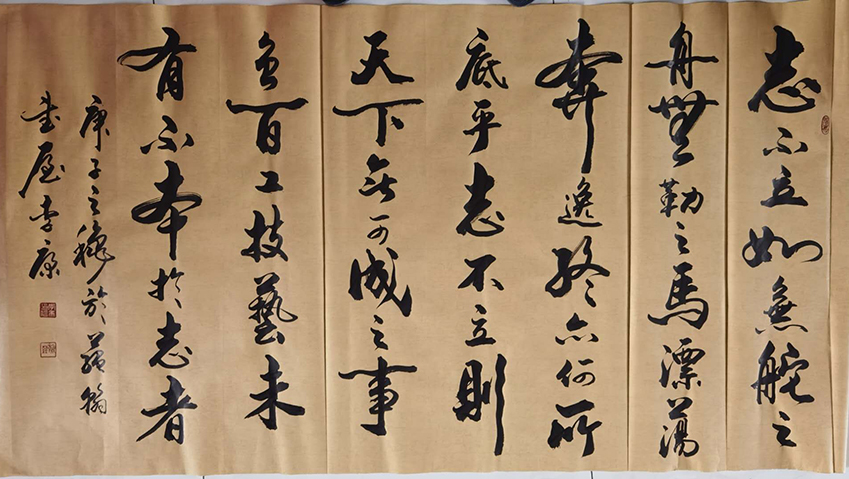 志不立如無舵之
舟無勒之馬漂蕩
奔逸終亦何所
底乎志不立則
天下無可成之事
雖百工技藝未
有不本於志者
庚子之秋於翰
書屋李康